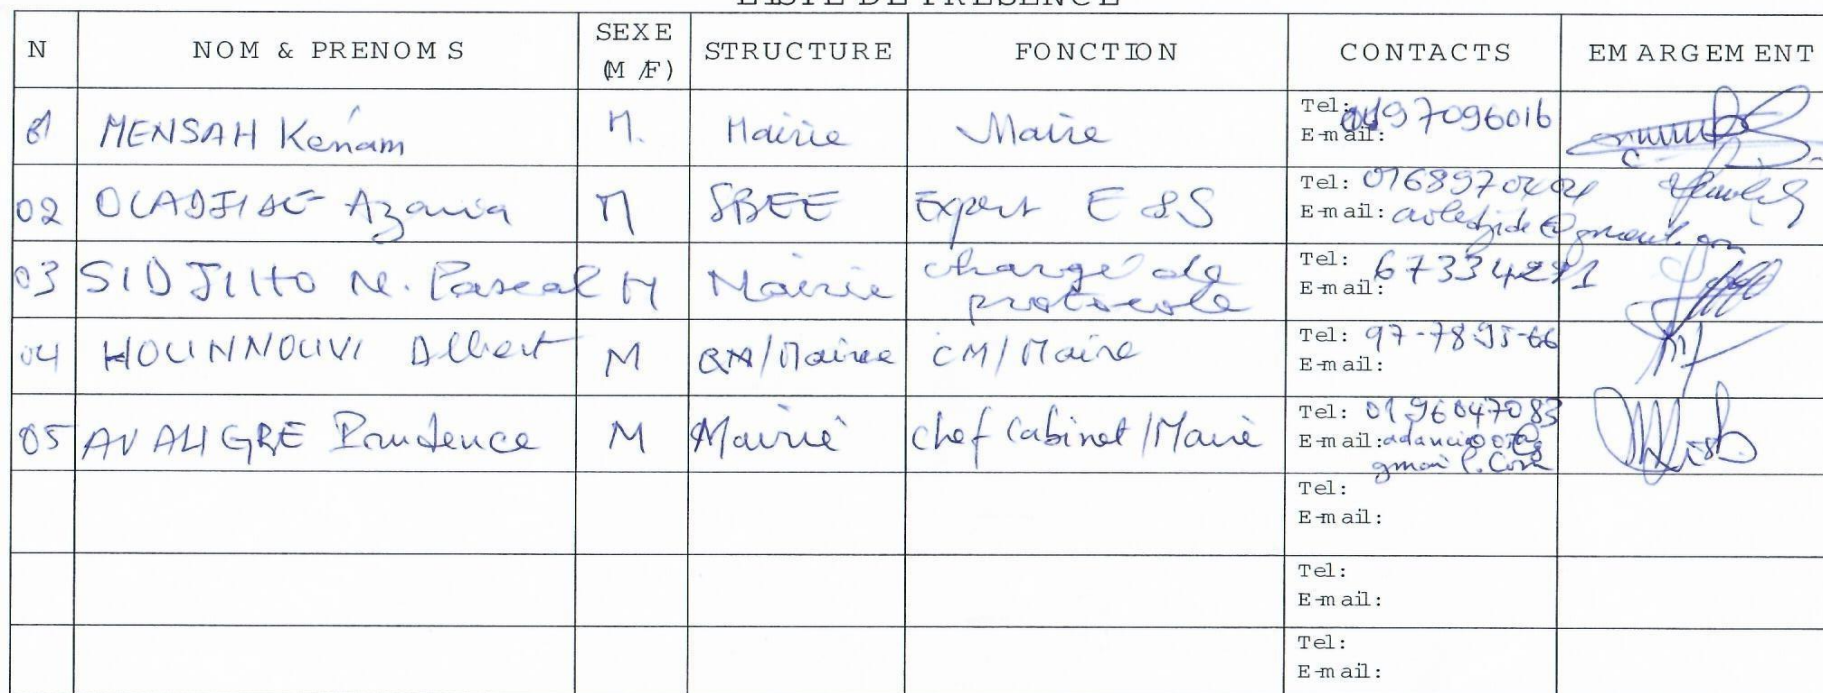 LISTE DE PRESENCE
N NOM & PRENOMS SEXE (M/F) STRUCTURE FONCTION CONTACTS EMARGEMENT
01 MENSAH Kenam M. Mairie Maire Tel: 0197096016
E-mail:
02 Azaria M SBEE Expert E&S Tel:
E-mail:
03 SIDJIHO N. Pascal M Mairie chargé de protocole Tel: 67334291
E-mail:
04 HOUNNOUVI Albert M CM/Maire Tel: 97-78-95-66
E-mail:
05 AVALIGRE Prudence M Mairie chef Cabinet/Maire Tel: 0196047083
E-mail: gmail.com
Tel:
E-mail:
Tel:
E-mail:
Tel:
E-mail: